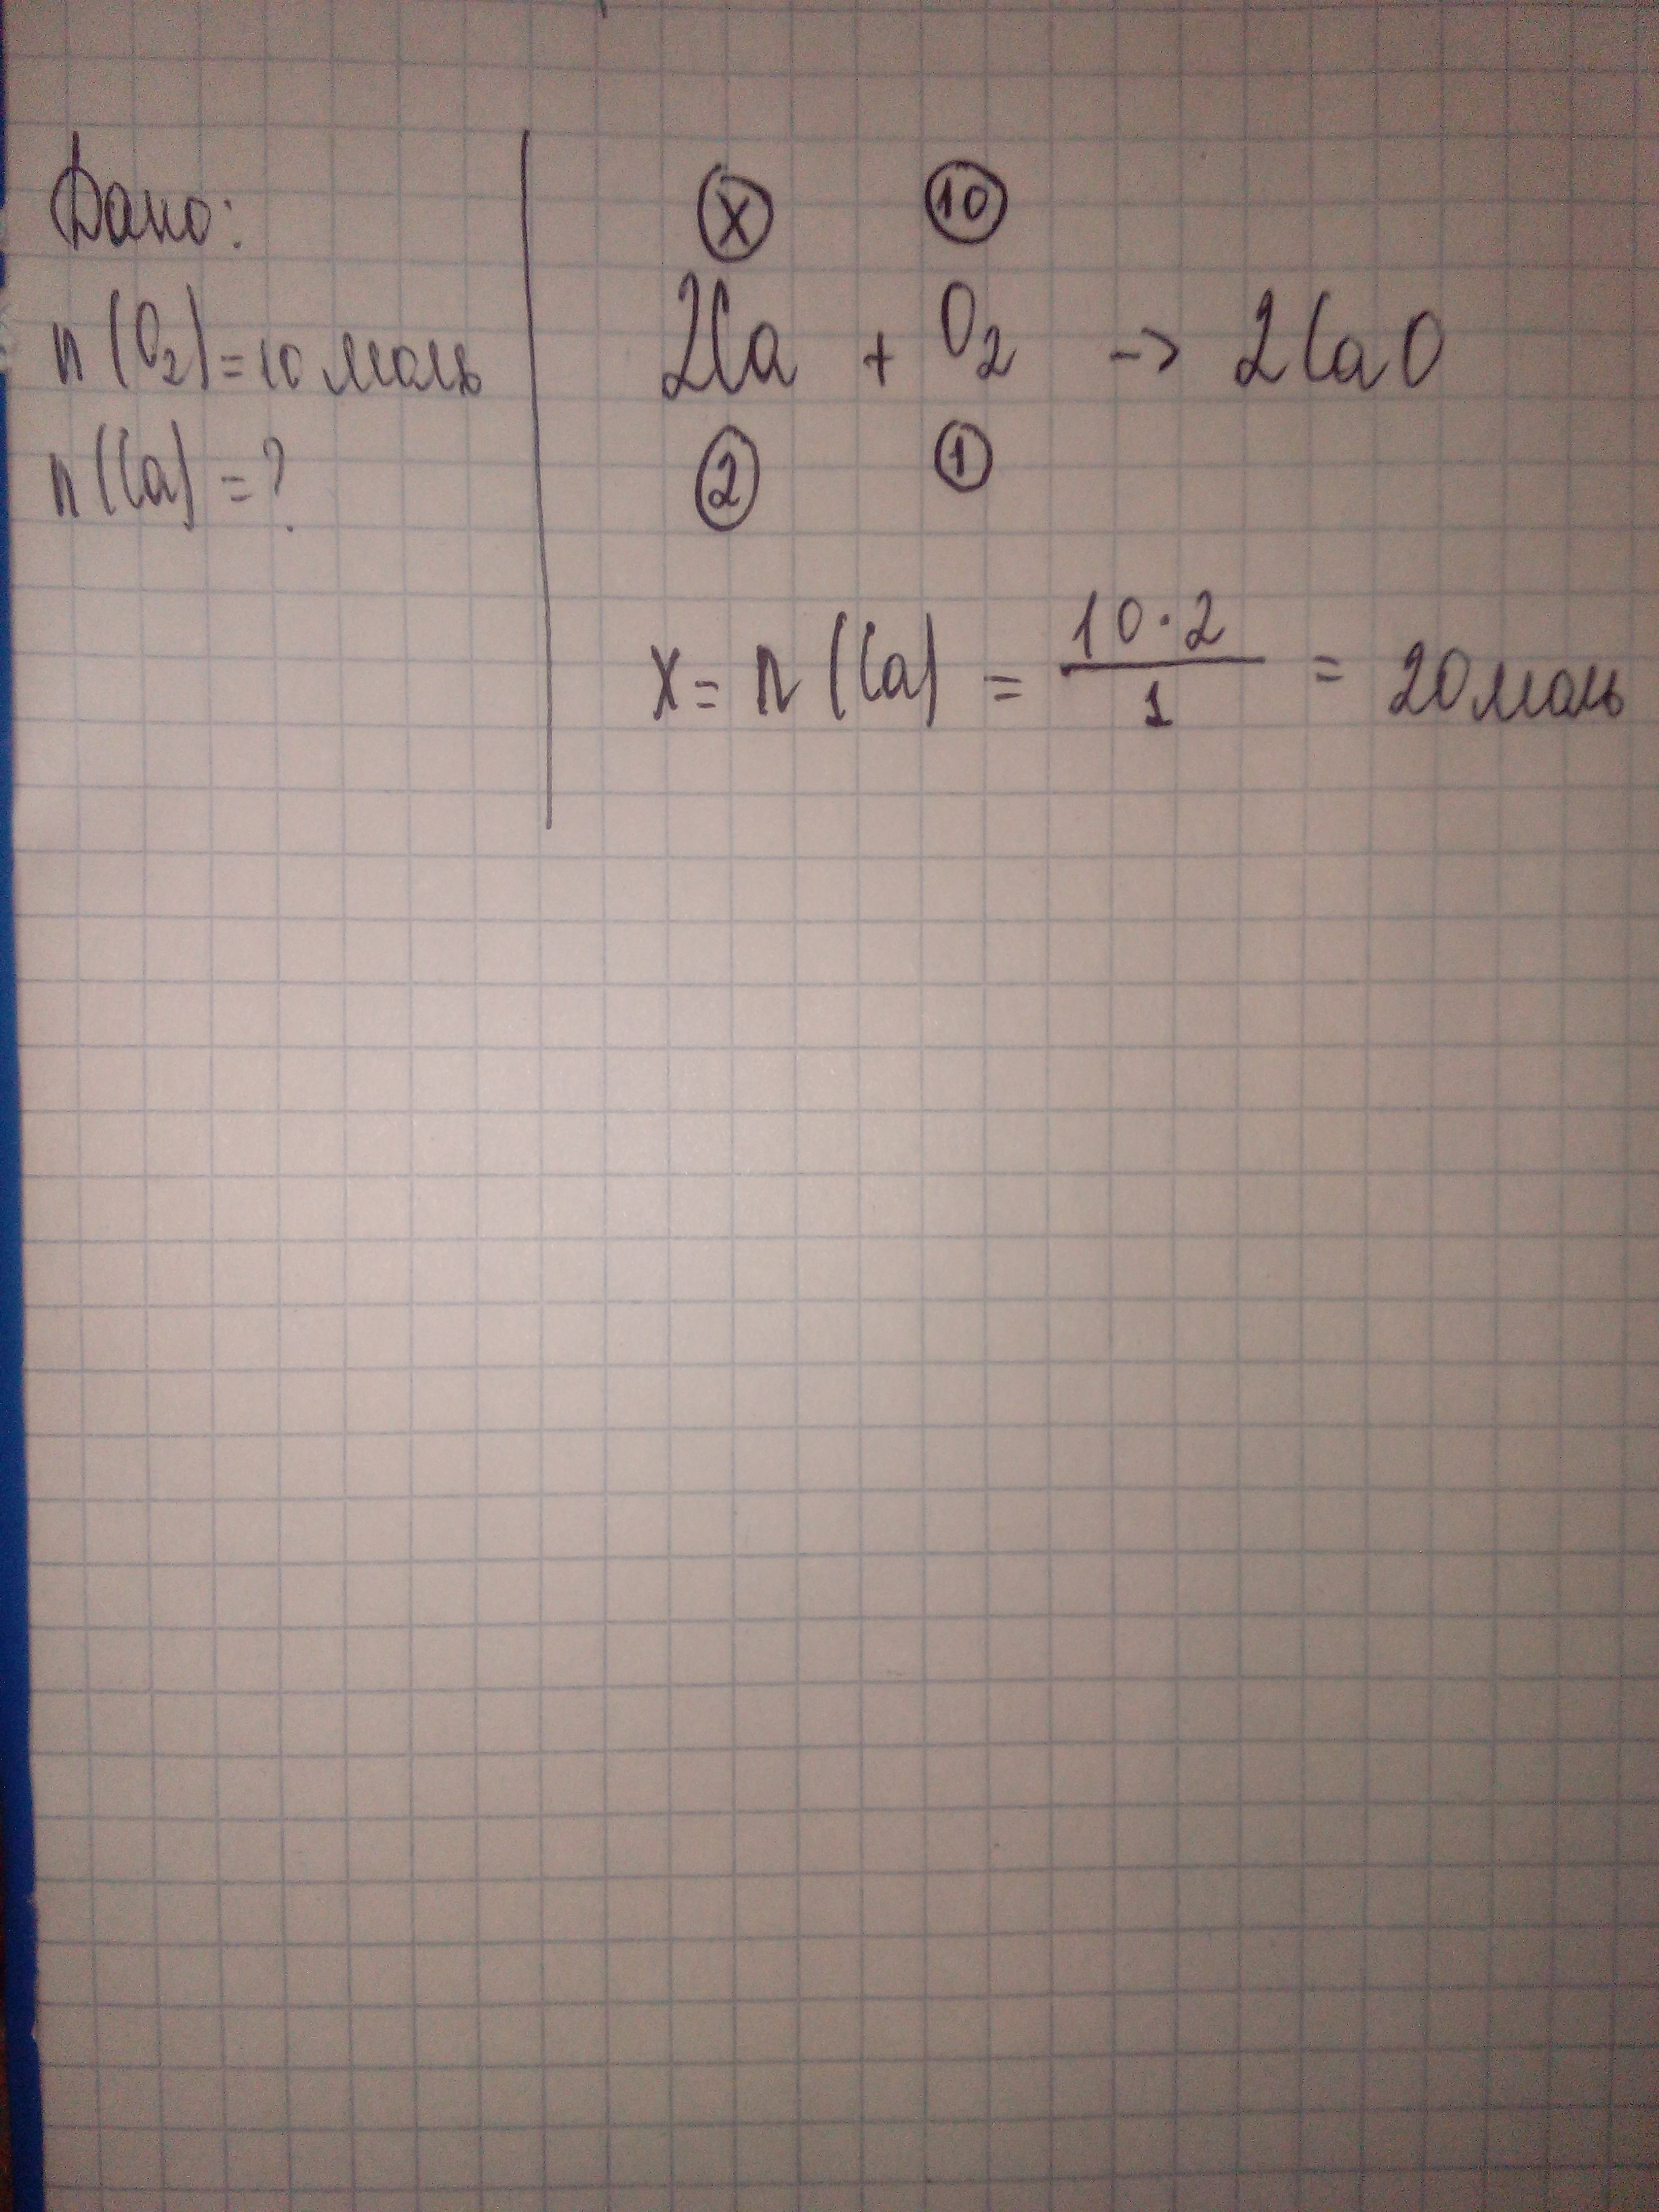 Дано:
n(O₂)=10 моль
n(Ca)=?
X 10
2Ca + O₂ -> 2CaO
2 1
x= n(Ca) = 10·2 / 1 = 20 моль